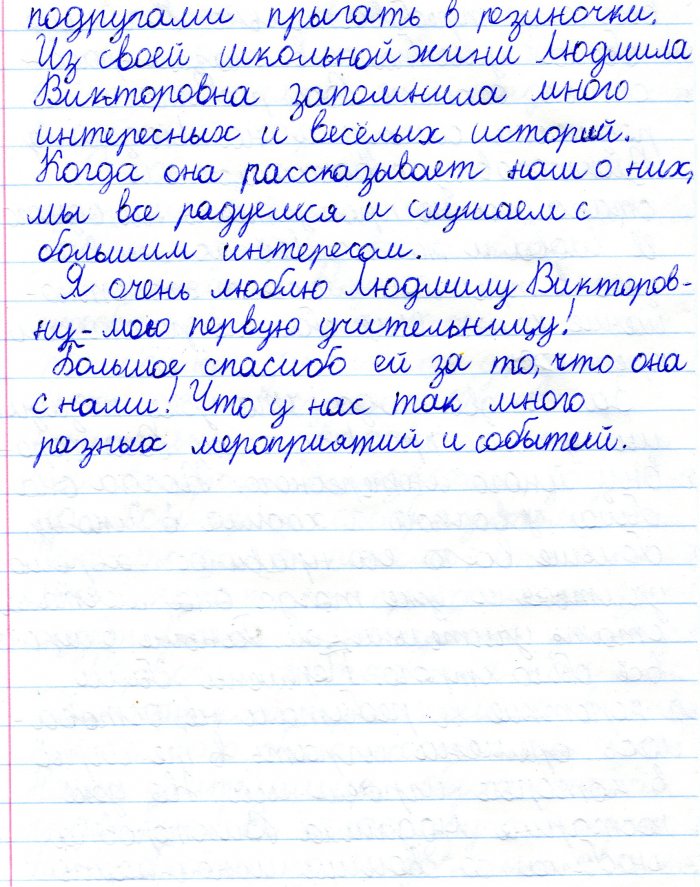 подругами прыгать в резиночки.
Из своей школьной жизни Людмила
Викторовна запомнила много
интересных и весёлых историй.
Когда она рассказывает нам о них,
мы все радуемся и слушаем с
большим интересом.
Я очень люблю Людмилу Викторов-
ну - мою первую учительницу!
Большое спасибо ей за то, что она
с нами! Что у нас так много
разных мероприятий и событий.